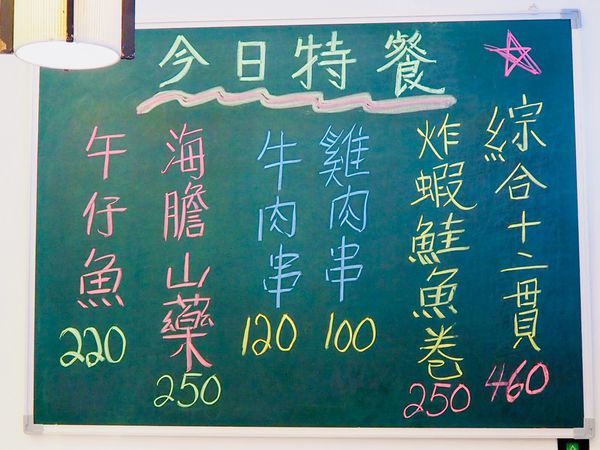 今日特餐
綜合十二貫
460
炸蝦鮭魚卷
250
雞肉串
100
牛肉串
120
海膽山藥
250
午仔魚
220